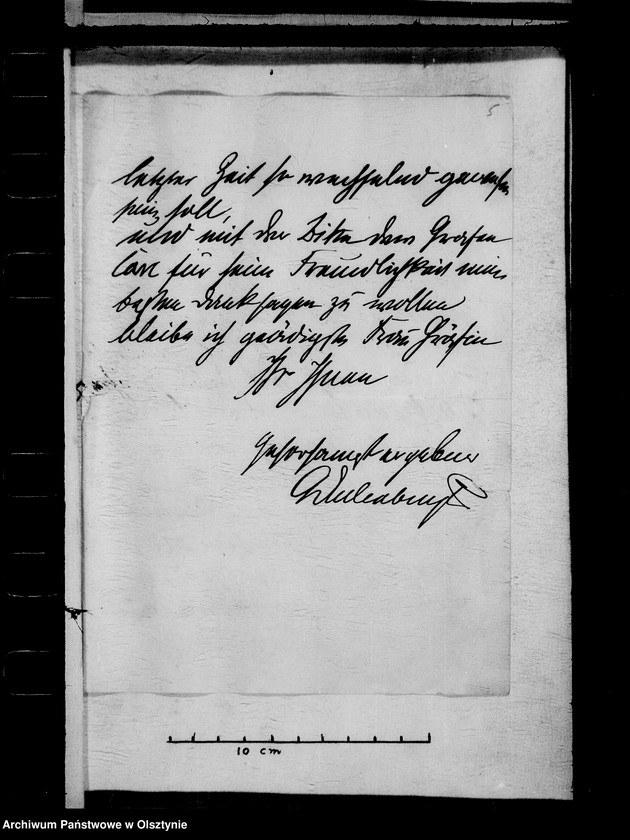 5
letzter Zeit so wechselnd gewesen
sein soll,
und mit der Bitte dem Grafen
Carl für seine Freundlichkeit mein
besten Dank sagen zu wollen
bleibe ich gnädigste Frau Gräfin
Ihr Ihnen
gehorsamst ergebener
Eulenburg
10 cm
Archiwum Państwowe w Olsztynie